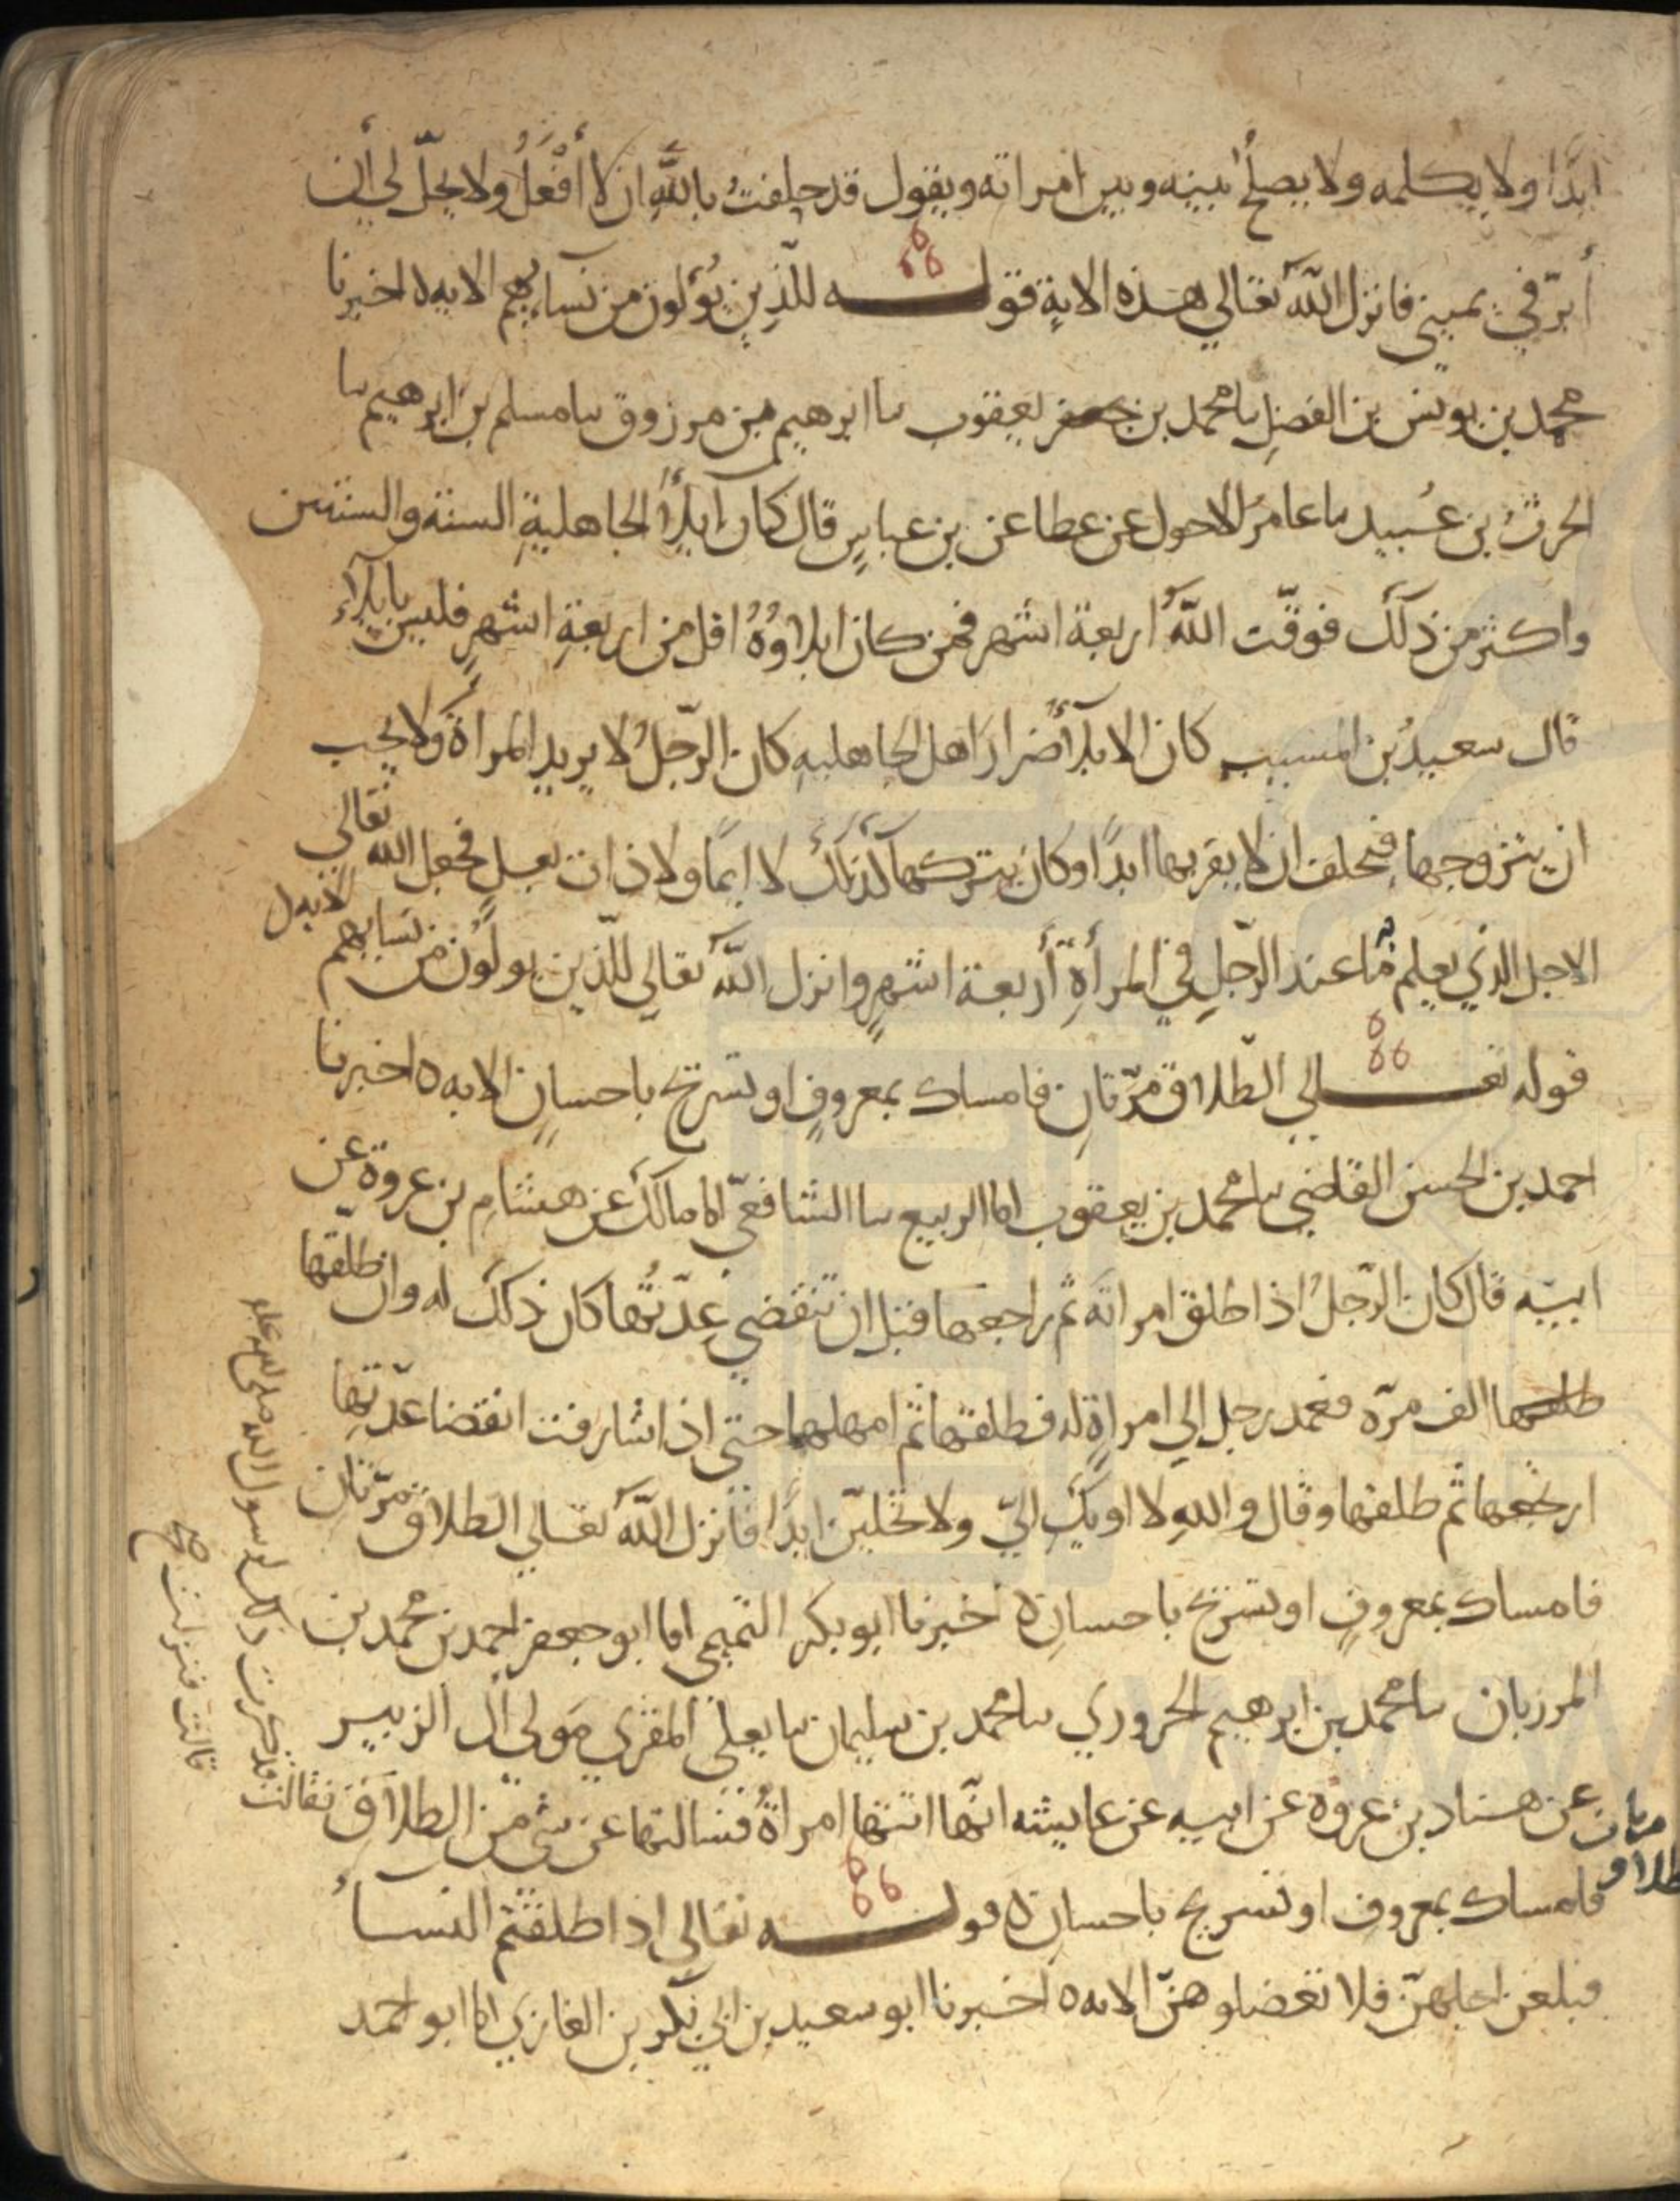 ابدا ولا يكلمه ولا يصلح بينه وبين امراته ويقول قد حلفت بالله ان لا أفعل ولا يحلّ لي أن
أبرّ في يميني فانزل الله تعالي هذه الاية قوله للّذين يؤلون من نسايهم الايه ه اخبرنا
محمد بن يونس بن الفضل ىا محمد بن يعقوب ىا ابرهيم بن مرزوق ىا مسلم بن ابرهيم ىا
الحرث بن عبيد ىا عامر الاحول عن عطا عن بن عباس قال كان ايلاء الجاهلية السنة والسنتين
واكثر من ذلك فوقّت الله اربعة اشهر فمن كان ايلاوه اقل من اربعة اشهر فليس بايلاء
قال سعيد بن المسيب كان الايلاء ضرار اهل الجاهليه كان الرّجل لا يريد المراة ولا يحب
ان يتزوجها فيحلف ان لا يقربها ابدا وكان يتركها كذلك لا ايما ولا ذات بعل فجعل الله تعالي
الاجل الذي يعلم به ما عند الرّجل في المرأة أربعة اشهر وانزل الله تعالي للّذين يولون من نسايهم
الايه ه
قوله تعالي الطّلاق مرّتان فامساك بمعروف او تسريح باحسان الايه ه اخبرنا
احمد بن الحسن القاضي ىا محمد بن يعقوب اما الربيع ىا الشافعيّ اما مالك عن هشام بن عروة عن
ابيه قال كان الرّجل اذا طلق امراته ثم راجعها قبل ان تنقضي عدّتها كان ذلك له وان طلّقها
طلقها الف مرّه فعمد رجل الي امراة له فطلقها ثم امهلها حتي اذا شارفت انقضا عدّتها
ارتجعها ثم طلقها وقال والله لا اويك اليّ ولا تحلين ابدا فانزل الله تعالي الطلاق مرّتان
فامساك بمعروف او تسريح باحسان ه اخبرنا ابو بكر التميمي اما ابو جعفر احمد بن محمد بن
المرزبان ىا محمد بن ابرهيم الحروري ىا محمد بن سليمان ىا يعلي المقري مولي آل الزبير
عن هشاد بن عروه عن ابيه عن عايشه انّها اتتها امراة فسالتها عن شي من الطلاق فقالت
فذكرت ذلك لرسول الله صلى الله عليه
قالت فنزلت صح
الطلاق مرتان
فامساك بمعروف او تسريح باحسان ه قوله تعالي اذا طلقتم النسا
فبلغن اجلهنّ فلا تعضلوهنّ الايه ه اخبرنا ابو سعيد بن ابي بكر بن الغازي اما ابو احمد